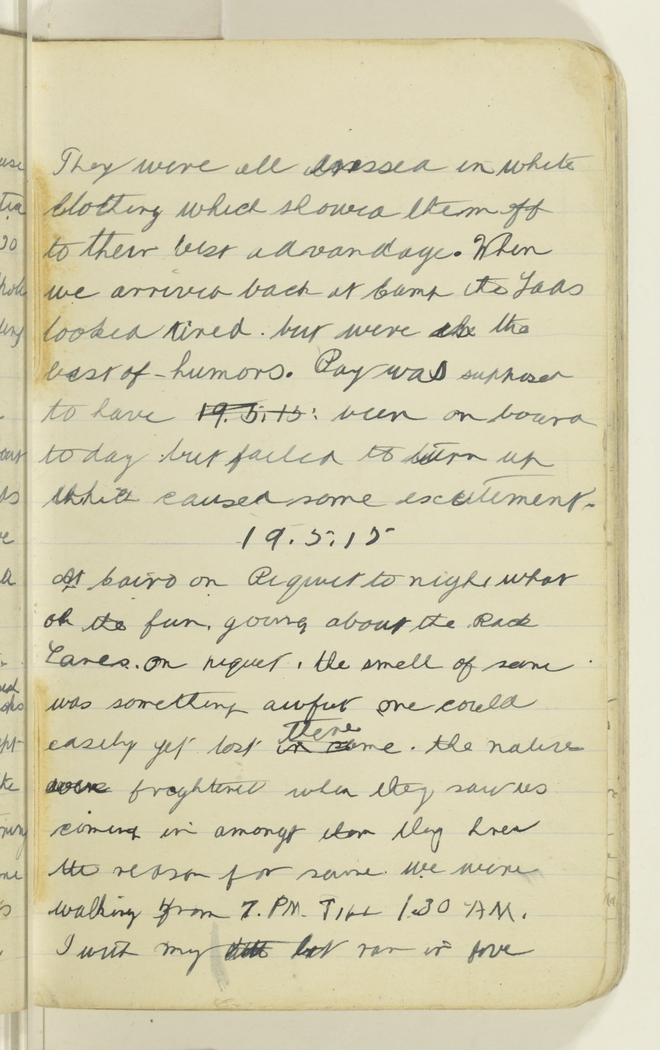 They were all dressed in white
Clothing which showed them off
to their best advandage. When
we arrived back at Camp the Lads
looked tired. but were the
best of - humors. Pay was supposed
to have 19.5.15: been on board
today but failed to turn up
which caused some excitement-
19.5.15
At Cairo on Piquet to night what
oh the fun. going about the Back
Lanes. on piquet. the smell of same
was something awful one could
easily get lost in same there. the native
were freghtened when they saw us
coming in amongst them they knew
the reason for same. we were
walking from 7. PM. Till 1.30 AM.
I with my lot ran in five